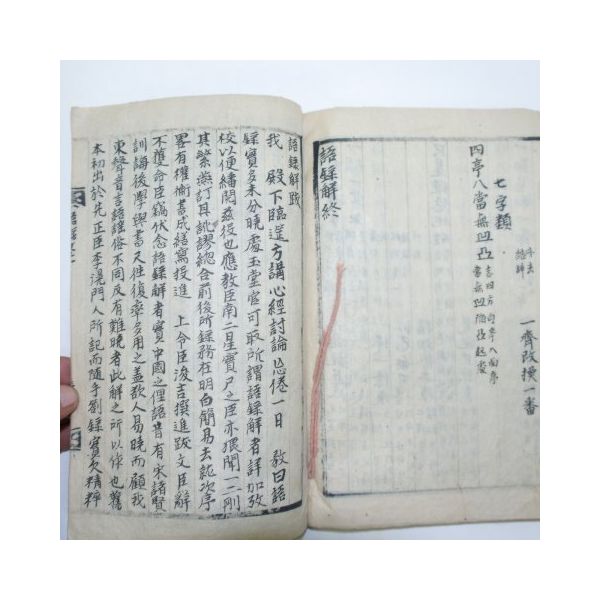 一齊改換一番
七字類
四亭八當無凹凸
言四方向亭八面亭
當無凹陷凸起處
語錄解終
語錄解跋
我 殿下臨筵方講心經討論忘倦一日 教曰語
錄實多未分曉處玉堂官可取所謂語錄解者詳加攷
校以便繙閱茲役也應教臣南二星實尸之臣亦猥聞一二刪
其繁蕪訂其訛謬總合前後所錄務在明白簡易去就次序
畧有權衡書成繕寫投進 上令臣浚吉撰進跋文臣辭
不獲命臣竊伏念語錄解者實中國之俚語昔有宋諸賢
訓誨後學與書尺往復率多用之盖欲人易曉而顧我
東聲音言語謠俗不同反有難曉者此解之所以作也舊
本初出於先正臣李滉門人所記而隨手劄錄實欠精粹